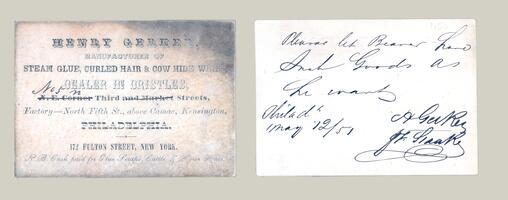 HENRY GERKER,
MANUFACTURER OF
STEAM GLUE, CURLED HAIR & COW HIDE WHIPS
DEALER IN BRISTLES,
N. E. Corner Third and Market Streets,
Factory—North Fifth St., above Camac, Kensington,
PHILADELPHIA.
172 FULTON STREET, NEW YORK.
P. B. Cash paid for Glue Scraps, Cattle &
Please let Bearer have
Such Goods as
he wants
Philada
May 12/51